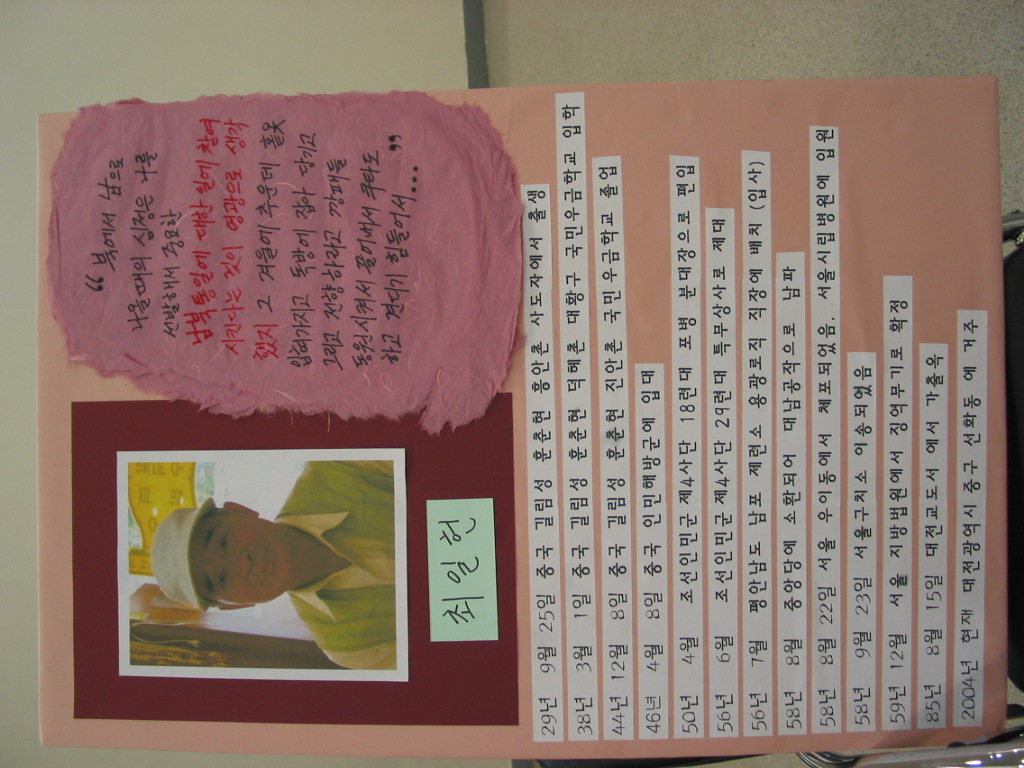 “북에서 남으로
나올때의 심정은 나를
선발해서 중요한
남북통일에 대한 일에 참여
시킨다는 것이 영광으로 생각
했지 그 겨울에 추운데 홑옷
입혀가지고 독방에 잡아 넣고
그리고 전향하라고 깡패들
동원시켜서 끌어내서 구타도
하고 견디기 힘들어서...”
최일헌
29년 9월 25일 중국 길림성 훈춘현 홍안촌 사도자에서 출생
38년 3월 1일 중국 길림성 훈춘현 덕혜촌 대황구 국민우급학교 입학
44년 12월 8일 중국 길림성 훈춘현 진안촌 국민우급학교 졸업
46년 4월 8일 중국 인민해방군에 입대
50년 4월 조선인민군 제4사단 18련대 포병 분대장으로 편입
56년 6월 조선인민군 제4사단 29련대 특무상사로 제대
56년 7월 평안남도 남포 제련소 용광로직 직장에 배치 (입사)
58년 8월 중앙당에 소환되어 대남공작으로 남파
58년 8월 22일 서울 우이동에서 체포되었음. 서울시립병원에 입원
58년 9월 23일 서울구치소 이송되었음
59년 12월 서울 지방법원에서 징역무기로 확정
85년 8월 15일 대전교도서 에서 가출옥
2004년 현재 대전광역시 중구 선화동 에 거주